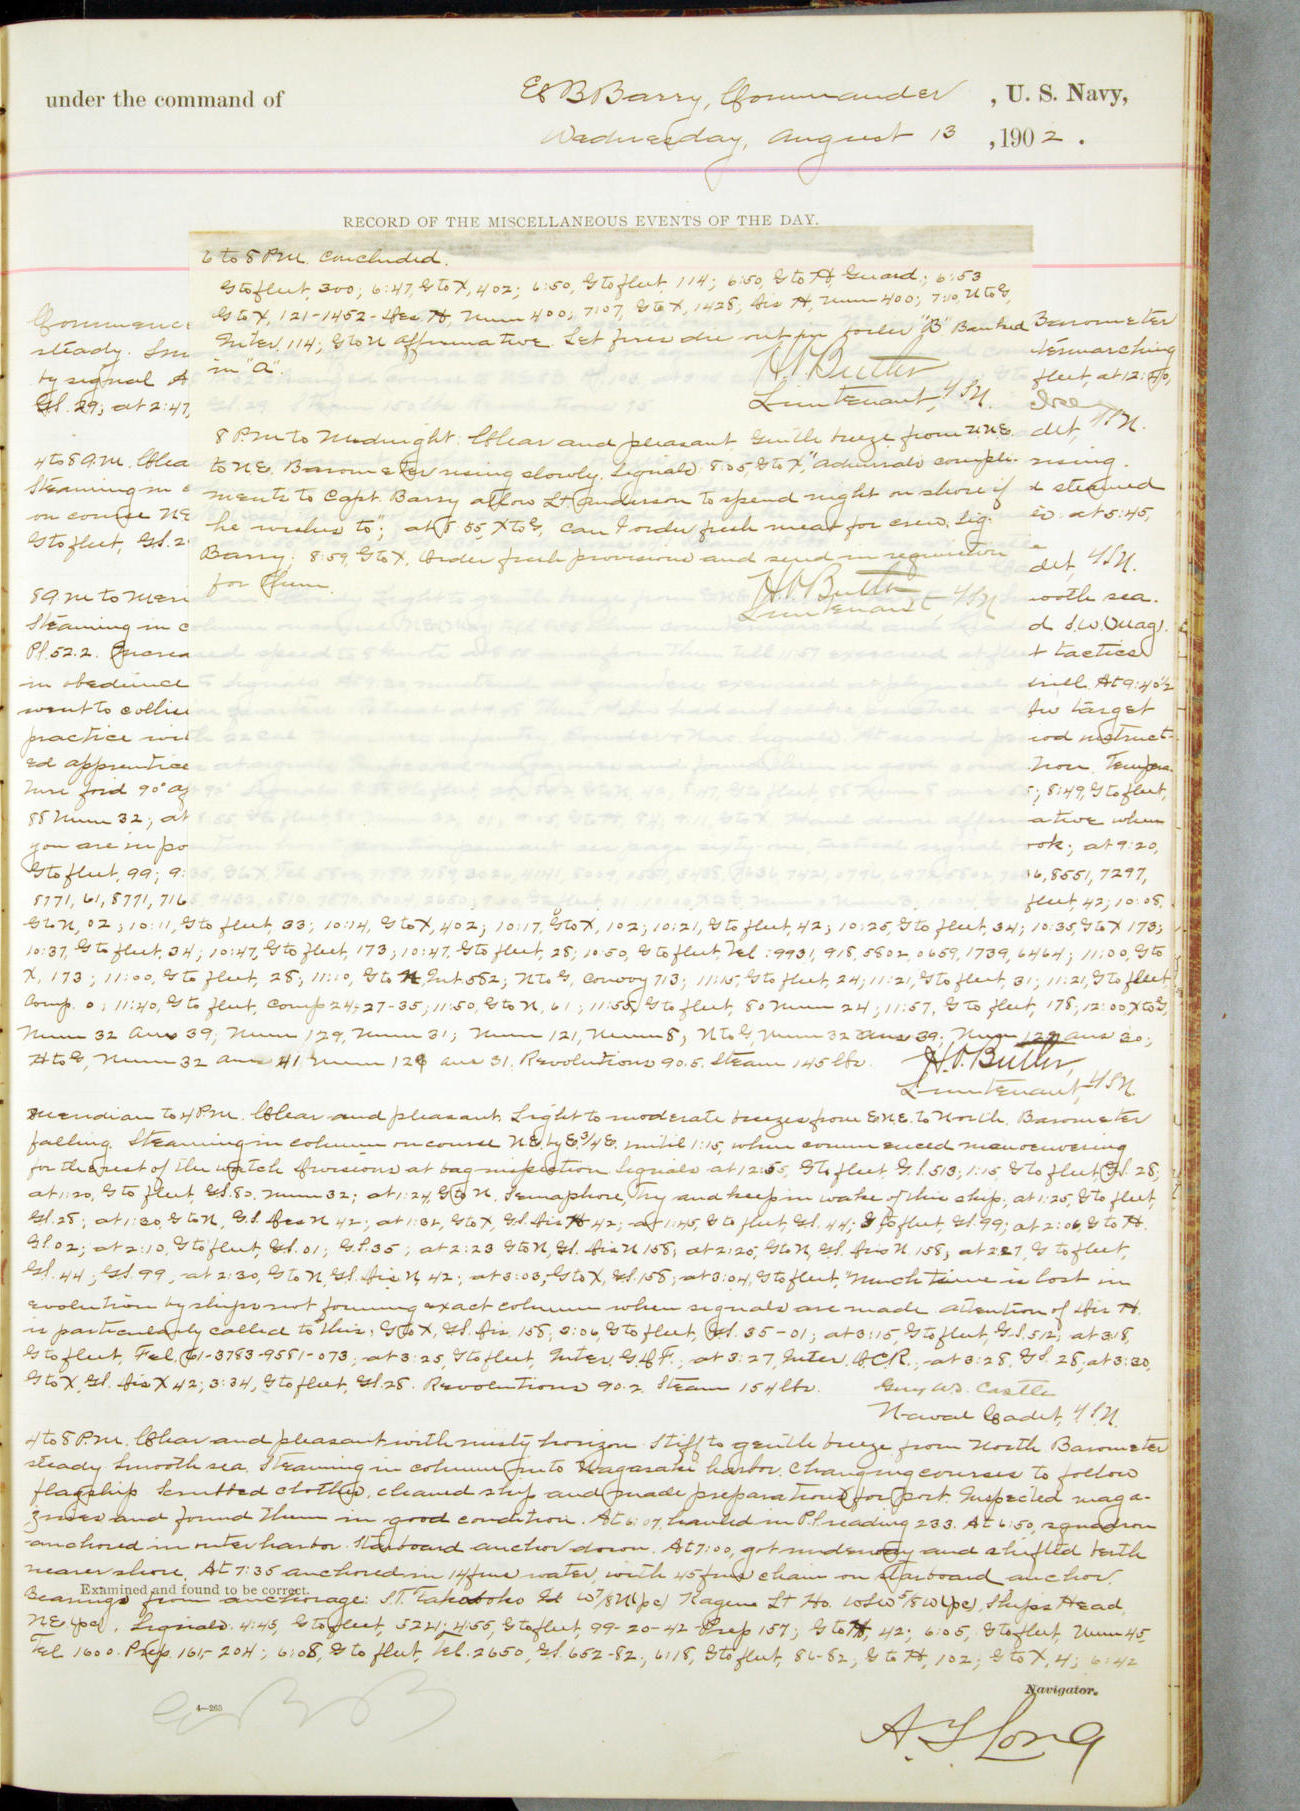 under the command of E B Barry, Commander, U. S. Navy,
Wednesday, August 13, 1902.
RECORD OF THE MISCELLANEOUS EVENTS OF THE DAY.
6 to 8 P.M. Concluded.
G to fleet, 300; 6:47, G to X, 402; 6:50, G to fleet, 114; 6:50, G to H, Guard; 6:53
G to X, 121-1452- H, Num 400; 7:07, G to X, 1428, H, Num 400; 7:10, N to G,
Inter. 114; G to N affirmative. Let fires die out in boiler "B" Banked
in "A".
H. Butler
Lieutenant, USN.
8 P.M. to Midnight: Clear and pleasant. Gentle breeze from N.N.E.
to N.E. Barometer rising slowly. Signals: 8:05, G to X, "Admirals compli-
ments to Capt. Barry allow Lt. Anderson to spend night on shore if
he wishes to"; at 8:55, X to G, Can I order fresh meat for crew. Sig.
Barry; 8:59, G to X, Order fresh provisions and send in requisition
for them.
H. Butler
Lieutenant USN
Commence Barometer
steady. termarching
by signal fleet, at 12:40,
G.S. 29; at 2:47,
det, USN.
4 to 8 A.M. Clea rising.
Steaming in d steamed
on course NE at 5:45,
G to fleet, G.S. 2
det, USN.
8 A.M. to Meri ooth sea.
Steaming in c d S.W. Mag.
P.l. 52.2. Increa t tactics
in obedience drill. At 9:40½
went to collisi target
practice wit iod instruct-
ed apprentice tion. Tempera
ture ford 90° af ; 8:49, G to fleet,
88 Num 32; at ative when
you are in po ook; at 9:20,
G to fleet, 99; 9: 6, 8551, 7297,
8771, 61, 8771, 716 fleet, 42; 10:08,
G to N, 02; 10:11, G to fleet, 33; 10:14, G to X, 402; 10:17, G to X, 102; 10:21, G to fleet, 42; 10:25, G to fleet, 34; 10:35, G to X 173;
10:37, G to fleet, 34; 10:47, G to fleet, 173; 10:47, G to fleet, 28; 10:50, G to fleet, Tel: 9931, 918, 5802, 0659, 1739, 6464; 11:00, G to
X, 173; 11:00, G to fleet, 28; 11:10, G to N, Int. 582; N to G, Convoy 713; 11:15, G to fleet, 24; 11:21, G to fleet, 31; 11:21, G to fleet
Comp. 0; 11:40, G to fleet, Comp 24-27-35; 11:50, G to N, 61; 11:55, G to fleet, 80 Num 24; 11:57, G to fleet, 178; 12:00 X to G,
Num 32 Ans 39; Num 129, Num 31; Num 121, Num 8; N to G, Num 32 ans 39; Num 129 ans 30;
H to G, Num 32 ans 41 Num 129 ans 31. Revolutions 90.5. Steam 145 lbs.
H. Butler,
Lieutenant, USN.
Meridian to 4 P.M. Clear and pleasant. Light to moderate breezes from E.N.E. to North. Barometer
falling. Steaming in column on course N.E. by E. ¾ E. until 1:15, when commenced manoeuvering
for the rest of the watch. Divisions at bag inspection. Signals at 12:55, G to fleet, G.S. 513; 1:15, G to fleet, G.S. 28;
at 1:20, G to fleet, G.S. 80. Num 32; at 1:24, G to N. Semaphore, Try and keep in wake of this ship; at 1:25, G to fleet,
G.S. 28; at 1:30, G to N, G.S. N 42; at 1:32, G to X, G.S. Dis H 42; at 1:45, G to fleet, G.S. 44; G to fleet, G.S. 99; at 2:06 G to H.
G.S. 02; at 2:10, G to fleet, G.S. 01; G.S. 35; at 2:23 G to N, G.S. Dis N 158; at 2:25, G to N, G.S. Dis N 158; at 2:27, G to fleet,
G.S. 44; G.S. 99, at 2:30, G to N, G.S. Dis N, 42; at 3:03, G to X, G.S. 158; at 3:04, G to fleet, "Much time is lost in
evolution by ships not forming exact column when signals are made. Attention of Dis H.
is particularly called to this; G to X, G.S. Dis. 158; 3:06, G to fleet, G.S. 35-01; at 3:15 G to fleet, G.S. 512; at 3:18,
G to fleet, Tel. 61-3783-9581-073; at 3:25, G to fleet, Inter. G.D.F.; at 3:27, Inter. C.R.; at 3:28, G.S. 28; at 3:30,
G to X, G.S. Dis X 42; 3:34, G to fleet, G.S. 28. Revolutions 90.2. Steam 154 lbs.
Guy W.S. Castle
Naval Cadet, USN.
4 to 8 P.M. Clear and pleasant with misty horizon. Stiff to gentle breeze from North. Barometer
steady. Smooth sea. Steaming in column into Nagasaki harbor. Changing courses to follow
flagship. Scrubbed clothes, cleaned ship and made preparations for port. Inspected maga-
zines and found them in good condition. At 6:07, hauled in P.l. reading 233. At 6:50, squadron
anchored in outer harbor. Starboard anchor down. At 7:00, got underway and shifted berth
nearer shore. At 7:35 anchored in 14 fms water, with 45 fms chain on starboard anchor.
Examined and found to be correct.
Bearings from anchorage: St. Takaboko W ⅞ N (pc) Kagine Lt Ho. WSW ⅝ W (pc), Ships Head,
NE (pc). Signals. 4:45, G to fleet, 5221; 4:55, G to fleet, 99-20-42-Prep 157; G to H, 42; 6:05, G to fleet, Num 45
Tel 1600. Prep. 161-204; 6:08, G to fleet, Tel. 2650, G.S. 652-82; 6:18, G to fleet, 86-82; G to H, 102; G to X, 4; 6:42
Navigator.
4—263
E B B
A. T. Long